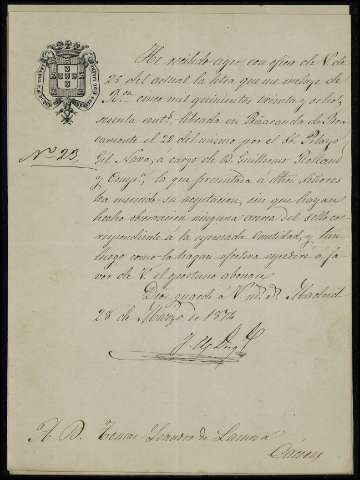 He recibido ayer, con oficio de V. de
25 del actual la letra que me incluye de
R.ⁿ cinco mil quinientos treinta y ocho,
cuenta cent.ˢ librada en Peñaranda de Bra-
camonte el 22 del mismo por el Sr. Pelayo
N.º 23
Gil Nava, a cargo de D. Guillermo Rolland
y Comp.ª, la que presentada á dichos Señores
ha merecido su aceptacion, sin que hayan
hecho observacion ninguna acerca del sello cor-
respondiente á la espresada Cantidad, y tan
luego como la hagan efectiva espediré á fa-
vor de V. el oportuno abonaré.
Dios guarde á V. m.ˢ a.ˢ Madrid
28 de Marzo de 1874
S. D. Tomas Leandro de Lamora